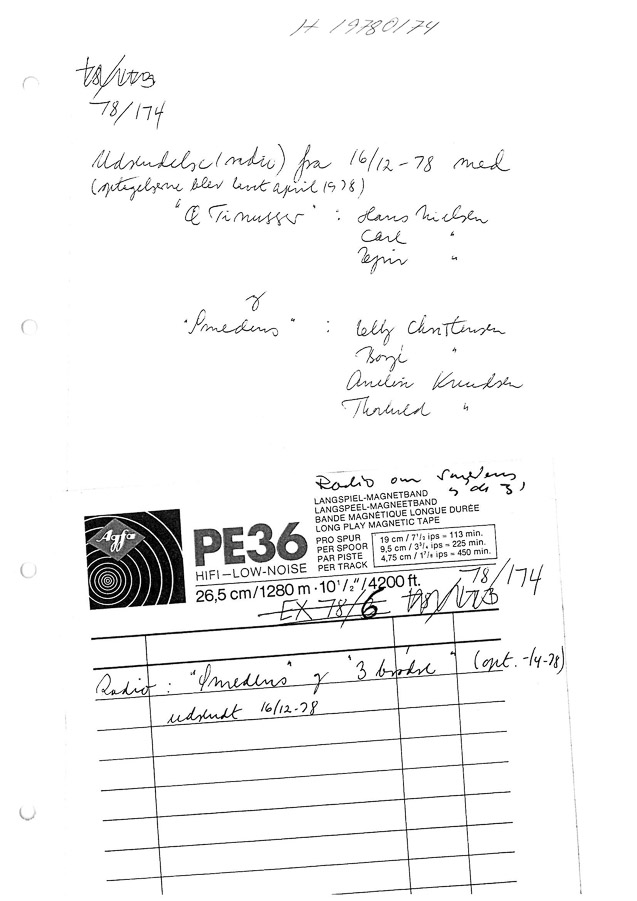 H 19780174
78/173
78/174
Udsendelse (radio) fra 16/12-78 med
(optagelserne blev lavet april 1978)
" Timusser " : Hans Nielsen
Carl "
Ejnar "
og
"Smedens" : Elly Christensen
Børge "
Anelise Knudsen
Thorkild "
Radio om Smedens
og de 3
LANGSPIEL-MAGNETBAND
LANGSPEEL-MAGNEETBAND
BANDE MAGNÉTIQUE LONGUE DURÉE
LONG PLAY MAGNETIC TAPE
Agfa
PE36
HIFI–LOW-NOISE
PRO SPUR
PER SPOOR
PAR PISTE
PER TRACK
19 cm / 7 1/2 ips = 113 min.
9,5 cm / 3 3/4 ips = 225 min.
4,75 cm / 1 7/8 ips = 450 min.
26,5 cm/1280 m · 10 1/2"/4200 ft.
78/174
EX 78/6 78/173
Radio : "Smedens" og "3 brødre" (opt. -/4-78)
udsendt 16/12-78